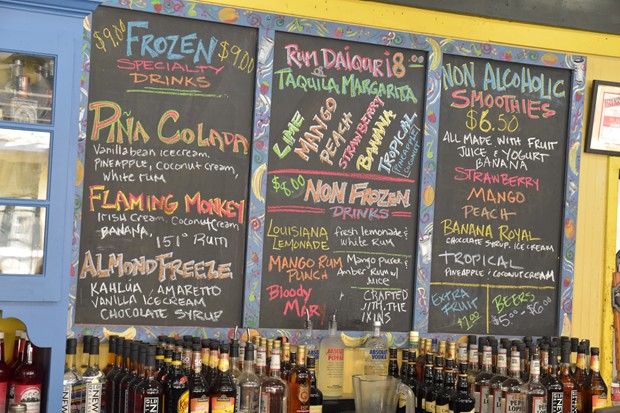 $9.00 FROZEN $9.00
SPECIALTY
DRINKS
PIÑA COLADA
Vanilla bean icecream,
PINEAPPLE, Coconut cream,
white rum
FLAMING MONKEY
Irish Cream, Coconut cream
BANANA,
151° RUM
ALMOND FREEZE
KAHLUA, AMARETTO
VANILLA ICECREAM
CHOCOLATE SYRUP
RUM DAIQUIRI 8.00
or
TAQUILA MARGARITA
LIME
MANGO
PEACH
STRAWBERRY
BANANA
TROPICAL
(PINEAPPLE
COCONUT
$8.00 NON FROZEN
DRINKS
LOUISIANA LEMONADE fresh lemonade &
white Rum
MANGO RUM PUNCH Mango puree &
Amber Rum w/
Bloody Mary CRAFTED
WITH THE
FIXINS
NON ALCOHOLIC
SMOOTHIES
$6.50
ALL MADE WITH FRUIT
JUICE, YOGURT
BANANA
STRAWBERRY
MANGO
PEACH
BANANA ROYAL
CHOCOLATE SYRUP, ICE CREAM
TROPICAL
PINEAPPLE / COCONUT CREAM
EXTRA
FRUIT
$1.00
BEERS
$5.00-$6.00
ABSOLUT
ABSOLUT